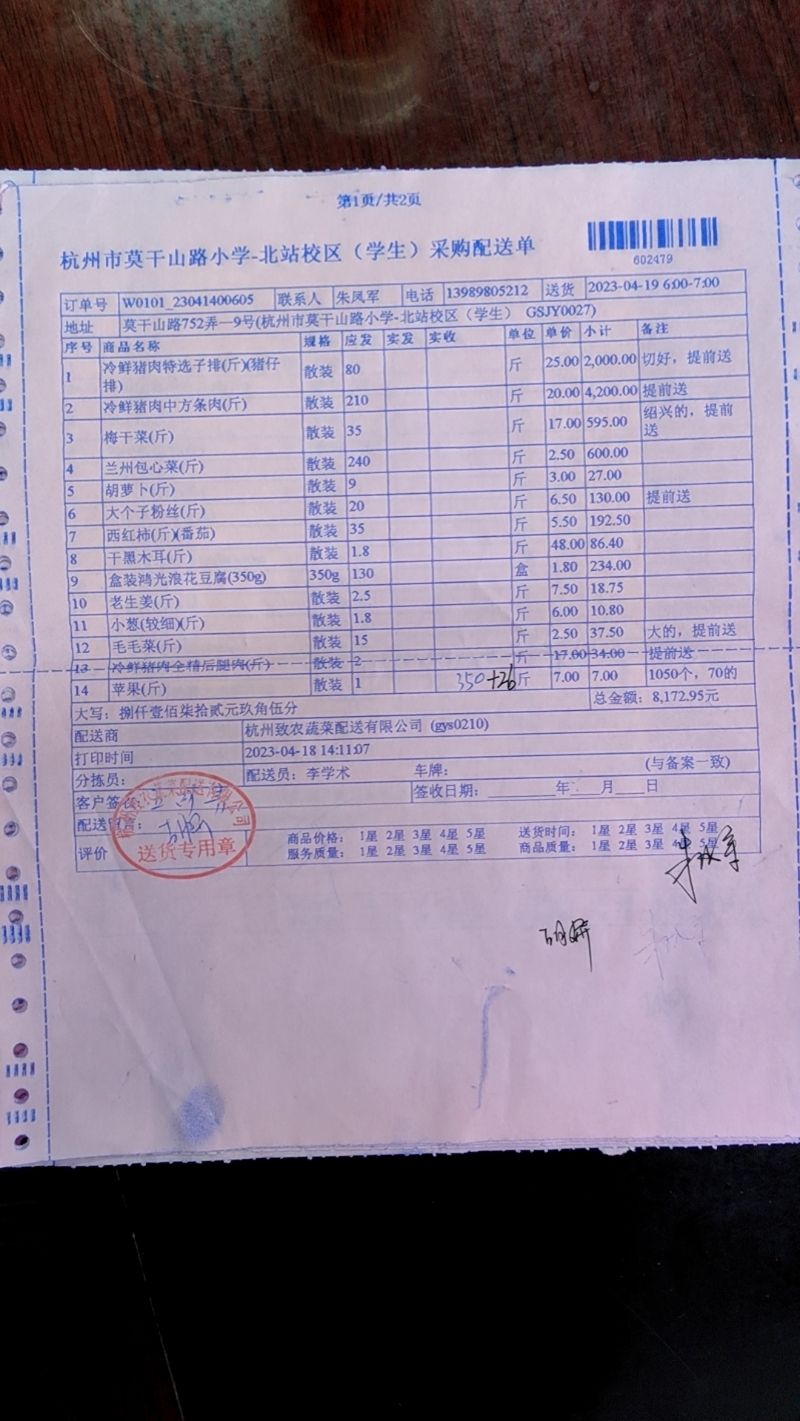 第1页/共2页
杭州市莫干山路小学-北站校区（学生）采购配送单
602479
订单号 W0101_23041400605 联系人 朱凤军 电话 13989805212 送货 2023-04-19 6:00-7:00
地址 莫干山路752弄一9号(杭州市莫干山路小学-北站校区（学生） GSJY0027)
序号 商品名称 规格 应发 实发 实收 单位 单价 小计 备注
1 冷鲜猪肉特选子排(斤)(猪仔排) 散装 80 斤 25.00 2,000.00 切好，提前送
2 冷鲜猪肉中方条肉(斤) 散装 210 斤 20.00 4,200.00 提前送
3 梅干菜(斤) 散装 35 斤 17.00 595.00 绍兴的，提前送
4 兰州包心菜(斤) 散装 240 斤 2.50 600.00
5 胡萝卜(斤) 散装 9 斤 3.00 27.00
6 大个子粉丝(斤) 散装 20 斤 6.50 130.00 提前送
7 西红柿(斤)(番茄) 散装 35 斤 5.50 192.50
8 干黑木耳(斤) 散装 1.8 斤 48.00 86.40
9 盒装鸿光浪花豆腐(350g) 350g 130 盒 1.80 234.00
10 老生姜(斤) 散装 2.5 斤 7.50 18.75
11 小葱(较细)(斤) 散装 1.8 斤 6.00 10.80
12 毛毛菜(斤) 散装 15 斤 2.50 37.50 大的，提前送
13 冷鲜猪肉全精后腿肉(斤) 散装 2 斤 17.00 34.00 提前送
14 苹果(斤) 散装 1 350+26 斤 7.00 7.00 1050个，70的
大写：捌仟壹佰柒拾贰元玖角伍分 总金额：8,172.95元
配送商 杭州致农蔬菜配送有限公司 (gys0210)
打印时间 2023-04-18 14:11:07
分拣员： 配送员：李学术 车牌： (与备案一致)
客户签 签收日期： 年 月 日
配送
送货专用章
评价 商品价格： 1星 2星 3星 4星 5星 送货时间： 1星 2星 3星 4星 5星
服务质量： 1星 2星 3星 4星 5星 商品质量： 1星 2星 3星 4星 5星